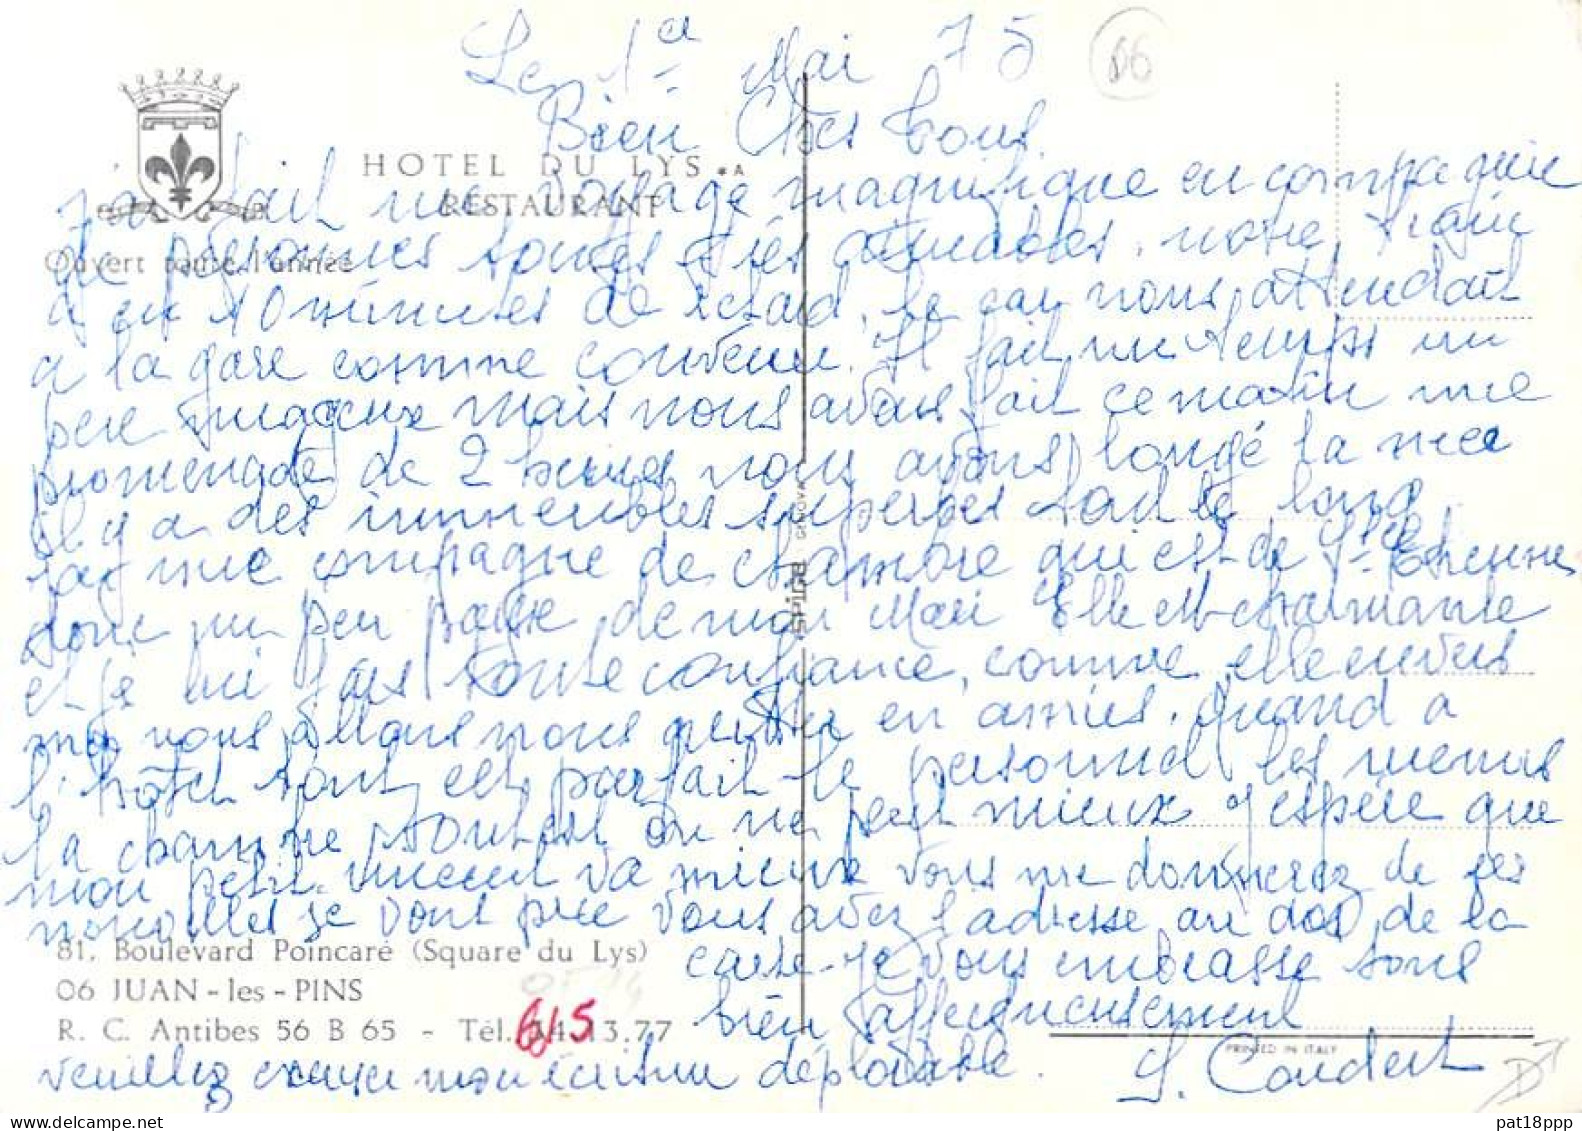 Le 1er Mai 75
Bien Chers tous
HOTEL DU LYS *A
RESTAURANT
Ouvert toute l'année
j'ai fait un voyage magnifique en compagnie
de personnes toutes très aimables, notre train
a eu 10 minutes de retard, le car nous attendait
a la gare comme convenu. Il fait un temps un
peu nuageux mais nous avons fait ce matin une
promenade de 2 heures nous avons longé la mer
il y a des immeubles superbes tout le long.
j'ai une compagne de chambre qui est de St Etienne
donc un peu payse de mon Mari Elle est charmante
et je lui fais toute confiance, comme elle envers
moi nous allons nous quitter en amies. Quand a
l'hôtel tout est parfait le personnel les menus
la chambre tout est on ne peut mieux j'espère que
mon petit Vincent va mieux vous me donnerez de ses
nouvelles je vous prie vous avez l'adresse au dos de la
carte. Je vous embrasse tous
bien affectueusement
81, Boulevard Poincaré (Square du Lys)
06 JUAN-les-PINS
R. C. Antibes 56 B 65 - Tél. 34.13.77
veuillez excuser mon écriture déplorable.
PRINTED IN ITALY
GENOVA
06
pat18ppp